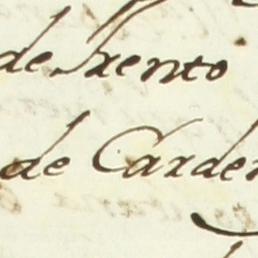 de Trento
de Carden